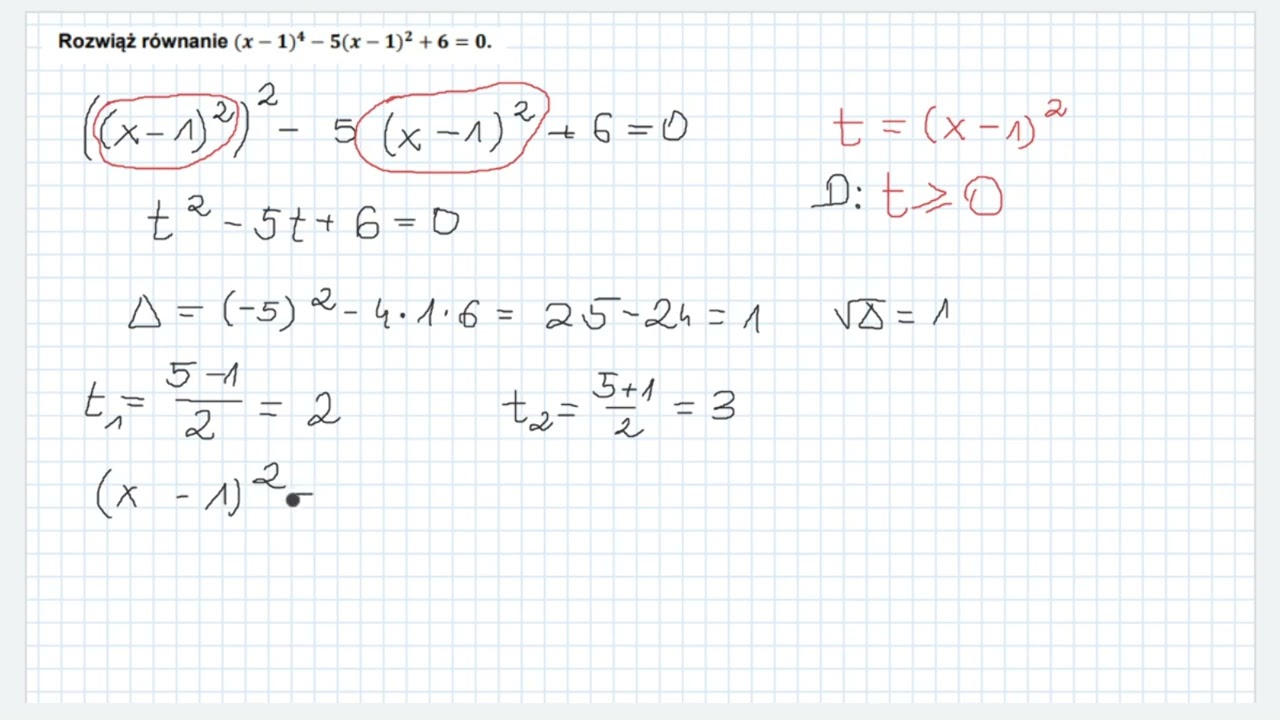 Rozwiąż równanie (x − 1)⁴ − 5(x − 1)² + 6 = 0.
((x − 1)²)² − 5(x − 1)² + 6 = 0
t = (x − 1)²
D: t ⩾ 0
t² − 5t + 6 = 0
Δ = (−5)² − 4 · 1 · 6 = 25 − 24 = 1
√Δ = 1
t₁ = (5 − 1)/2 = 2
t₂ = (5 + 1)/2 = 3
(x − 1)² −